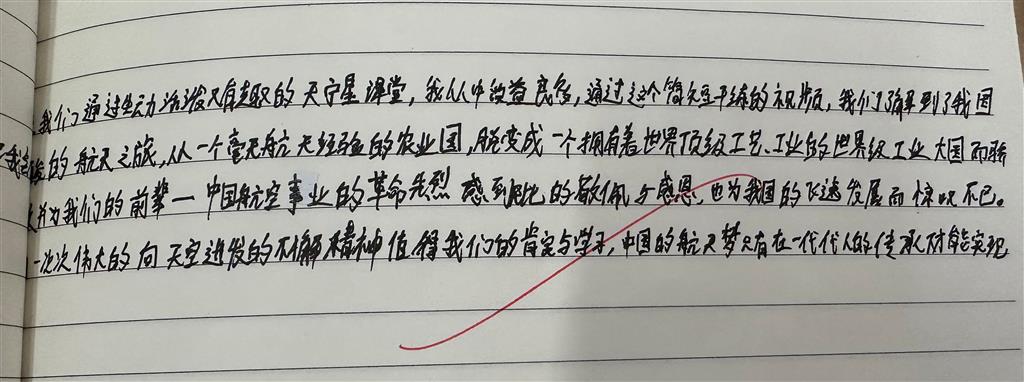 我们通过生动活泼又有趣的天宁星课堂，我从中收益良多，通过这个简短干练的视频，我们了解到了我国
的航天之旅，从一个毫无航天经验的农业国，脱变成一个拥有着世界顶级工艺、工业的世界级工业大国而骄
并为我们的前辈一中国航空事业的革命先烈感到无比的敬佩与感恩，也为我国的飞速发展而惊叹不已。
一次次伟大的向天空进发的不懈精神值得我们的肯定与学习，中国的航天梦只有在一代代人的传承才能实现